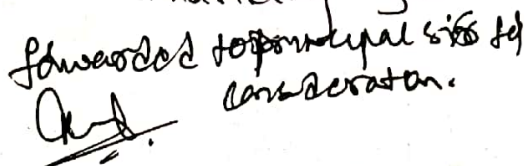 forwarded to principal sir for
consideration.